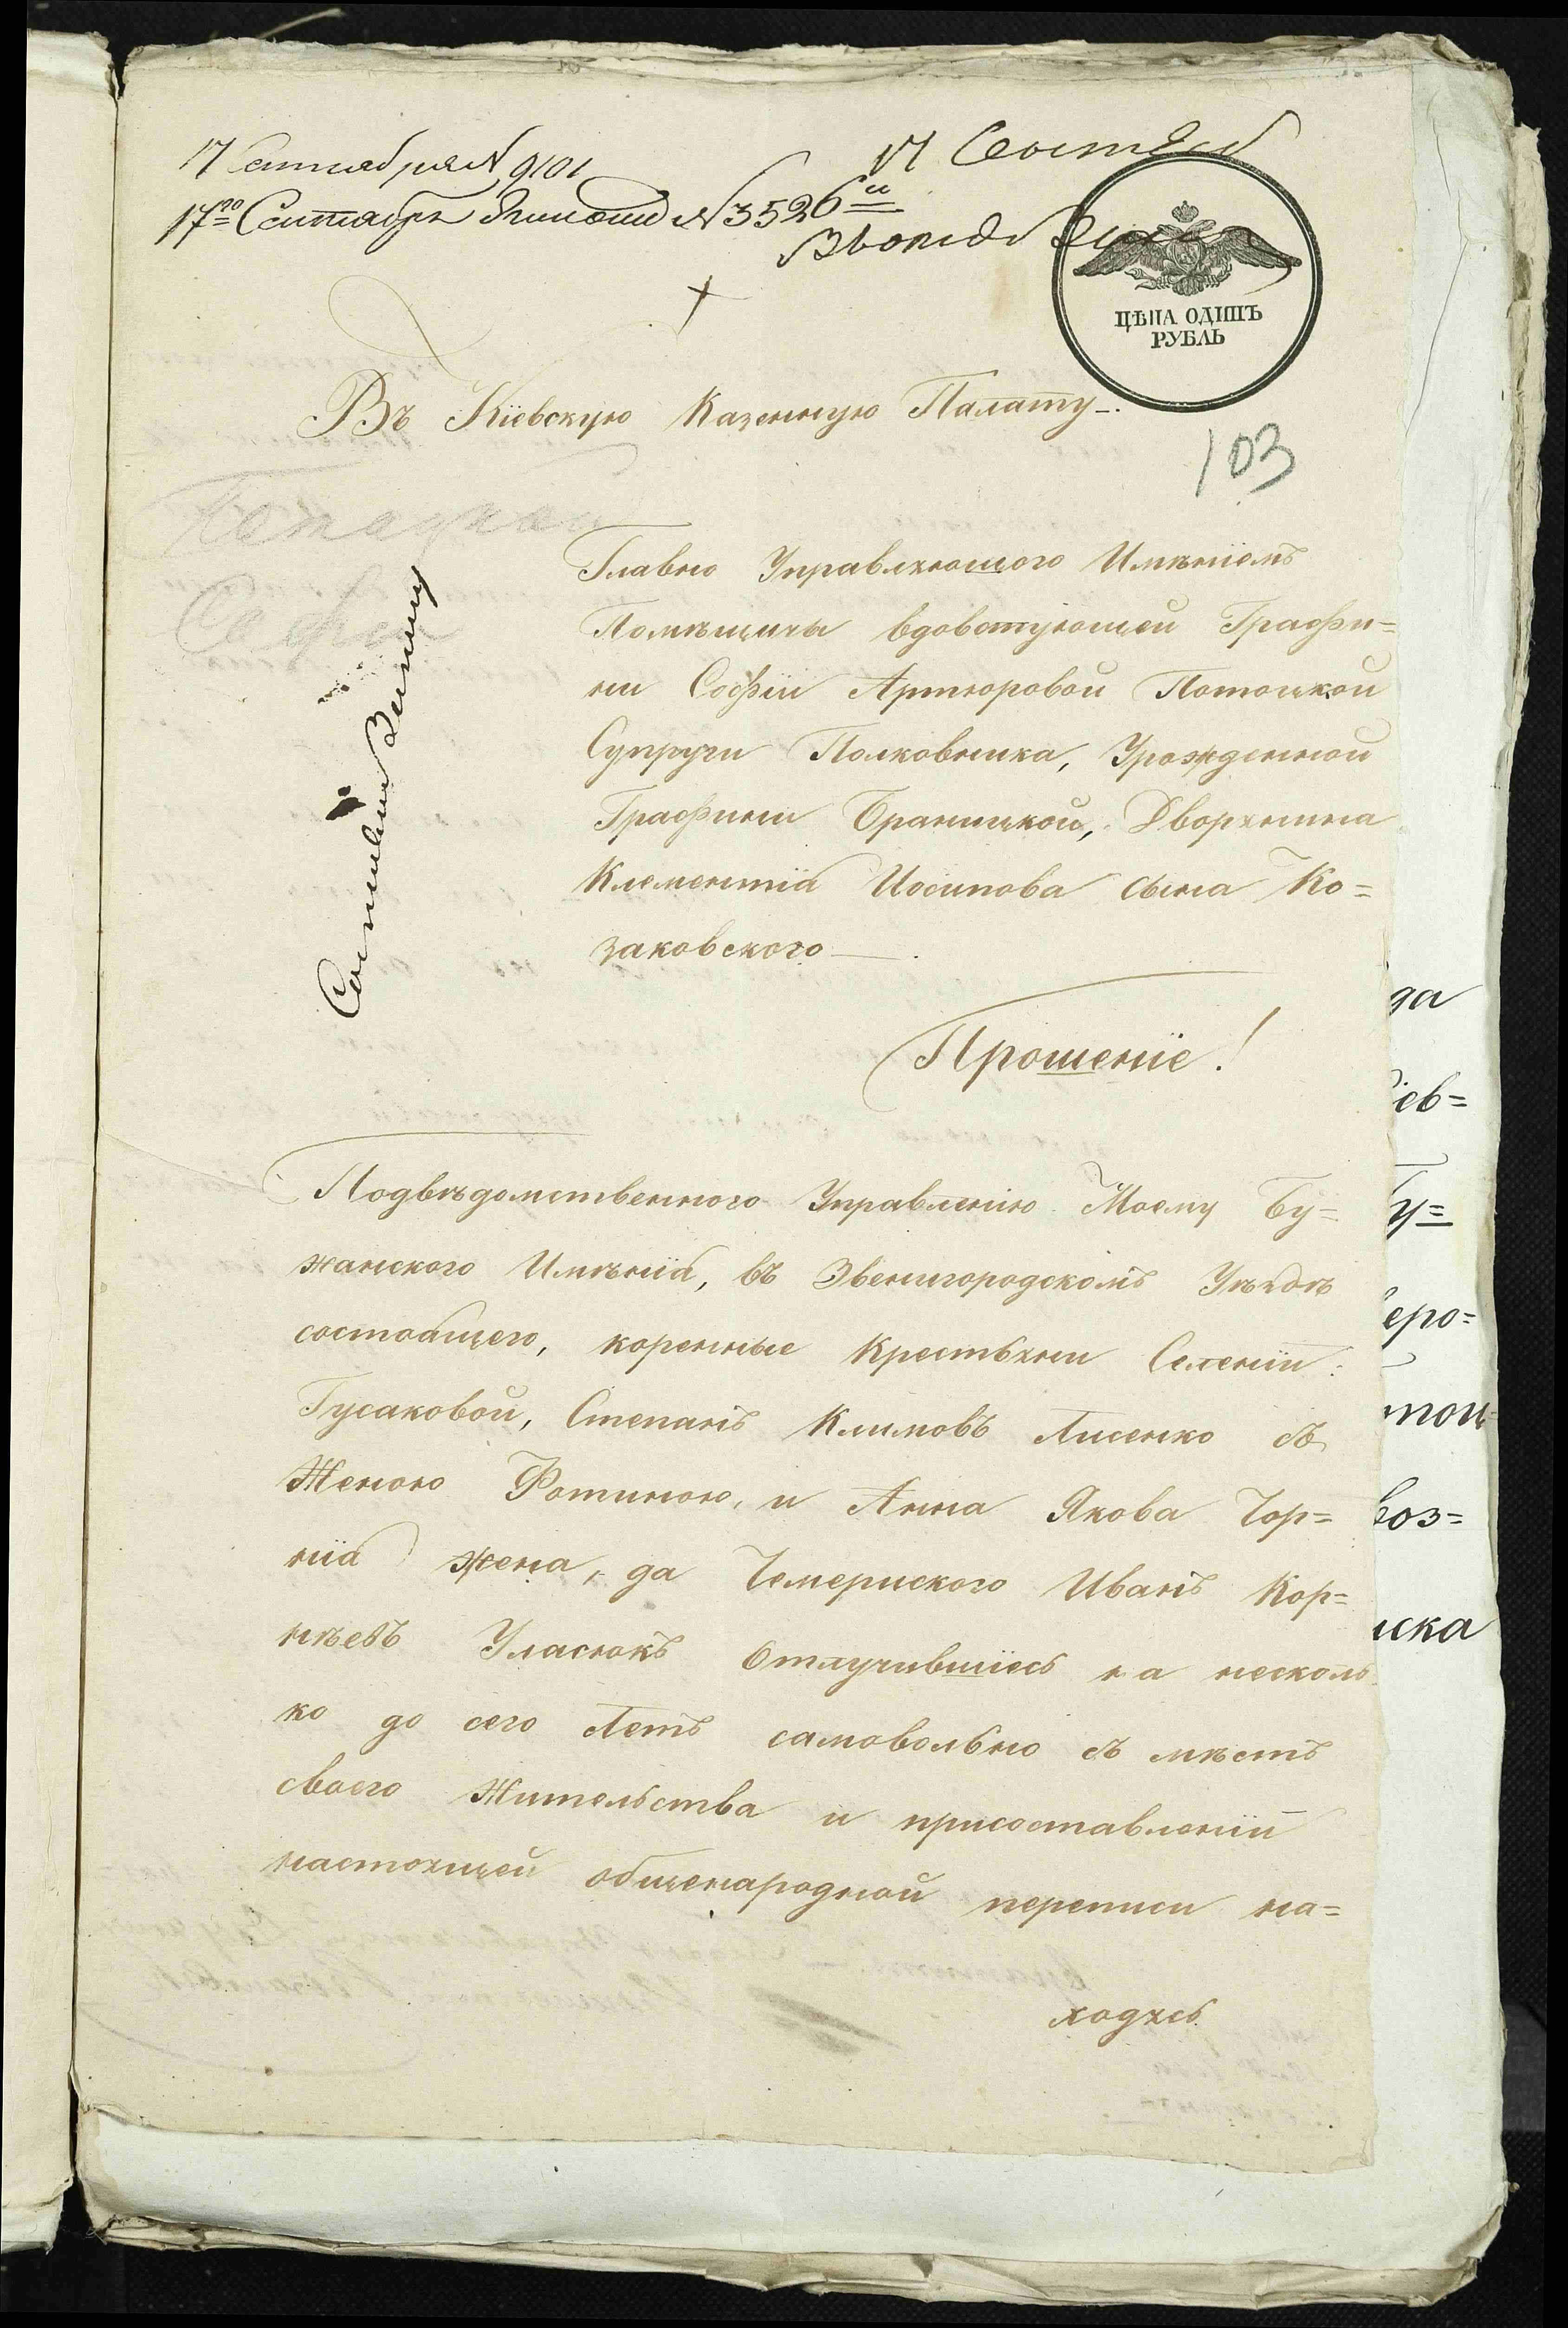 17 Сентября № 9101
17го Сентября № 3526й
17
ЦѢНА ОДИНЪ
РУБЛЬ
Въ Кіевскую Казенную Палату.
103
Потоцкой
Софіи
Главно Управляющого Имѣніемъ
Помѣщицы вдовствующей Графи=
ни Софіи Артюровой Потоцкой
Супруги Полковника, Урожденной
Графини Браницкой, Дворянина
Клементія Иосипова сына Ко=
заковского.
Прошеніе!
Подвѣдомственного Управленію Моему Бу=
жанского Имѣнія, въ Звенигородскомъ Уѣздѣ
состоящего, коренные Крестьяни Селеній:
Гусаковой, Степанъ Климовъ Лисенко съ
Женою Фотиною, и Анна Якова Чор=
нія жена, да Чемериского Иванъ Кор=
нѣевъ Уласюкъ Отлучившіесь на несколь
ко до сего Летъ самовольно съ мѣстъ
своего Жительства и присоставленіи
настоящей общенародной переписи на=
ходясь
да
іев=
Бу=
еро=
воз=
иска